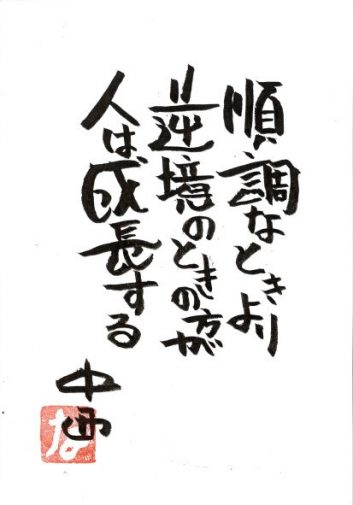 順調なときより
逆境のときの方が
人は成長する
中西
な